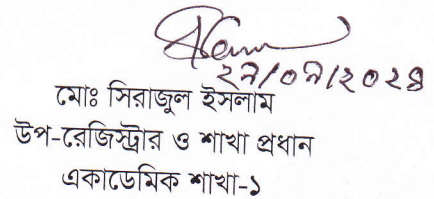 ২৯/০৯/২০২৪
মোঃ সিরাজুল ইসলাম
উপ-রেজিস্ট্রার ও শাখা প্রধান
একাডেমিক শাখা-১